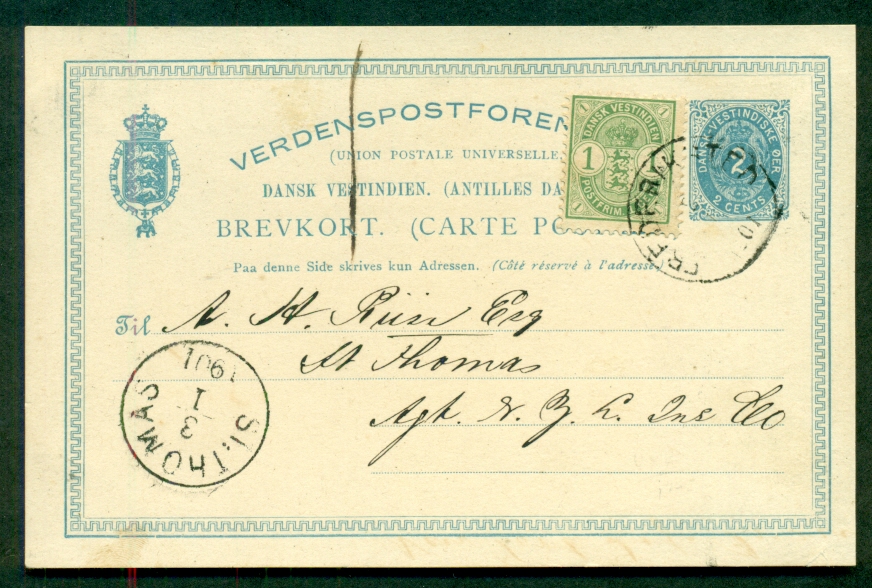 VERDENSPOSTFOREN
(UNION POSTALE UNIVERSELLE
DANSK VESTINDIEN. (ANTILLES DA
BREVKORT. (CARTE PO
Paa denne Side skrives kun Adressen. (Côté réservé à l'adresse
1 1
DANSK VESTINDIEN
1
POSTFRIM.
1
DANSK-VESTINDISKE ØER
2
2 CENTS
FREDERIKSTED
Til A. H. Riise Esq
St Thomas
Agt. N. Z. L. Ins Co
ST. THOMAS
3
1
1901